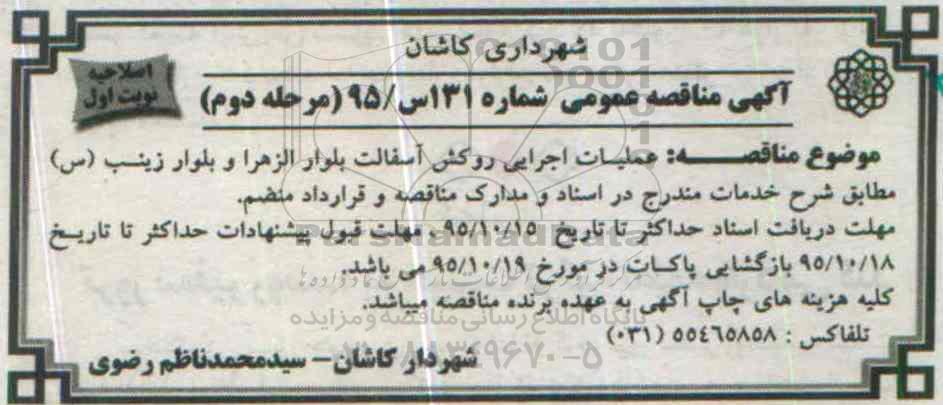 شهرداری کاشان
اصلاحیه
نوبت اول
آگهی مناقصه عمومی شماره ۱۳۱س/۹۵ (مرحله دوم)
موضوع مناقصـــــه: عملیات اجرایی روکش آسفالت بلوار الزهرا و بلوار زینب (س)
مطابق شرح خدمات مندرج در اسناد و مدارک مناقصه و قرارداد منضم.
مهلت دریافت اسناد حداکثر تا تاریخ ۹۵/۱۰/۱۵ ، مهلت قبول پیشنهادات حداکثر تا تاریخ
۹۵/۱۰/۱۸ بازگشایی پاکات در مورخ ۹۵/۱۰/۱۹ می باشد.
کلیه هزینه های چاپ آگهی به عهده برنده مناقصه میباشد.
پایگاه اطلاع رسانی مناقصه و مزایده
تلفاکس : ۵۵۴۶۵۸۵۸ (۰۳۱)
شهردار کاشان – سیدمحمدناظم رضوی
ParsNamadData